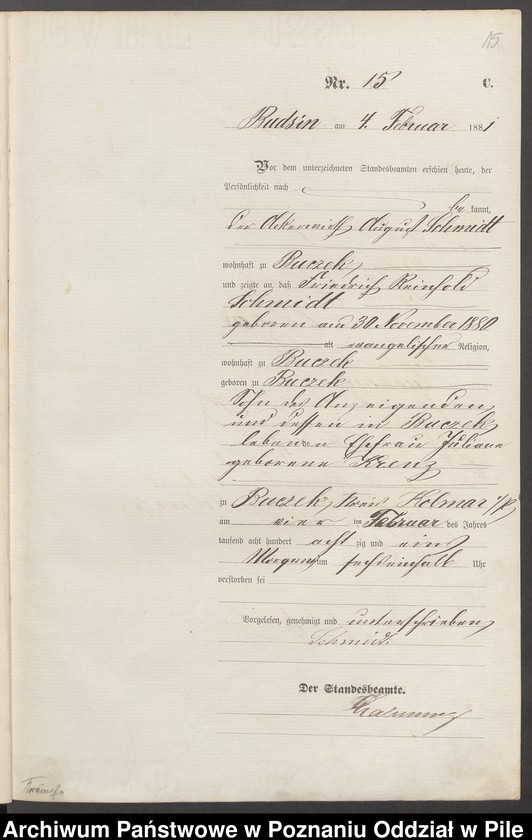 15
Nr. 15 C.
Budsin am 4. Februar 1881
Vor dem unterzeichneten Standesbeamten erschien heute, der
Persönlichkeit nach
be kannt,
der Ackerwirth August Schmidt
wohnhaft zu Buczek
und zeigte an, daß Friedrich Reinhold
Schmidt
geboren am 30 November 1880
alt evangelischer Religion,
wohnhaft zu Buczek
geboren zu Buczek
Sohn des Anzeigenden
und dessen in Buczek
lebenden Ehefrau Juliane
geborene Krenz
zu Buczek, Kreis Kolmar i/P
am vier ten Februar des Jahres
tausend acht hundert acht zig und ein
Morgens um sechseinhalb Uhr
verstorben sei
Vorgelesen, genehmigt und unterschrieben
Schmidt
Der Standesbeamte.
Archiwum Państwowe w Poznaniu Oddział w Pile